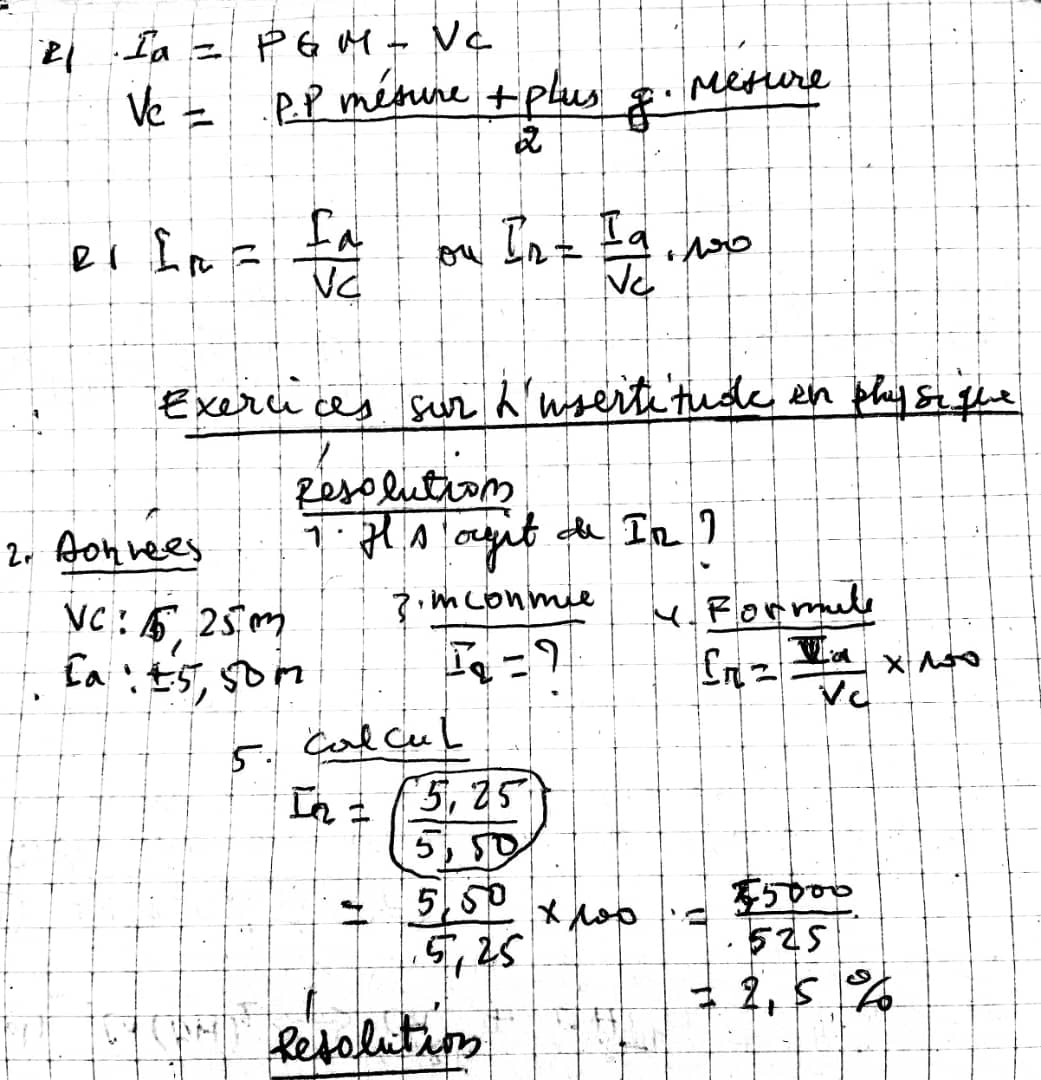 2) Ia = PGM - VC
Vc = P.P mésure + plus g. Mesure
2
2) Ir = Ia / VC ou Ir = Ia / Vc . 100
Exercices sur L'insertitude en physique
Résolution
1. Il s'agit de Ir ?
2. Données
3. inconnue
4. Formule
VC : 5,25 m
Ia : ±5,50 m
Ir = ?
Ir = Ia / Vc x 100
5. Calcul
Ir = 5,25 / 5,50
= 5,50 / 5,25 x 100 = 55000 / 525
= 2,5 %
Résolution